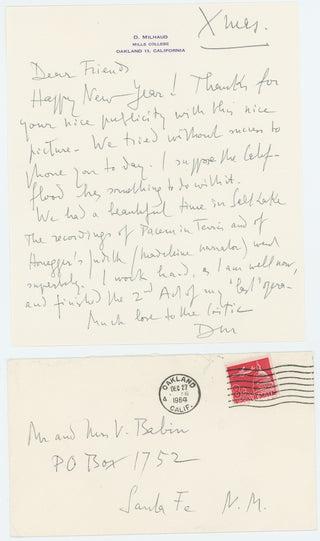 Xmas.
D. MILHAUD
MILLS COLLEGE
OAKLAND 13, CALIFORNIA
Dear Friends
Happy New Year! Thanks for
your nice publicity with this nice
picture. We tried without success to
phone you to day. I suppose the Calif.
flood has something to do with it.
We had a beautiful time in Salt Lake
The recordings of Pacem in Terris and of
Honegger's Judith (Madeleine narrator) went
superbly. I work hard, as I am well now,
and finished the 2nd Act of my "last" opera.
Much love to the
DM
OAKLAND
DEC 27
1964
CALIF.
Mr and Mrs V. Babin
PO Box 1752
Santa Fe N.M.